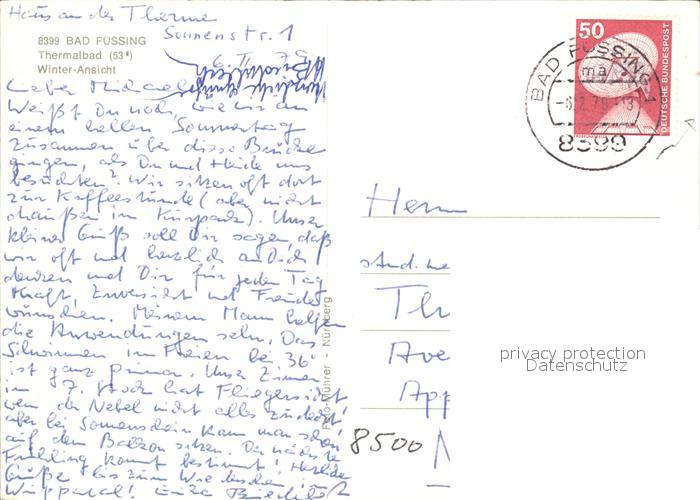 Haus an der Therme
Sonnenstr. 1
8399 BAD FÜSSING
Thermalbad (53°)
Winter-Ansicht
Lieber Michael
Weißt Du noch, wie wir an
einem hellen Sommertag
zusammen über diese Brücke
gingen, als Du und Heide uns
besuchten? Wir sitzen oft dort
zur Kaffeestunde (aber nicht
draußen im Kurpark). Unser
kleiner Gruß soll Dir sagen, daß
wir oft und herzlich an Dich
denken und Dir für jeden Tag
Kraft, Zuversicht und Freude
wünschen. Meinem Mann helfen
die Anwendungen sehr. Das
Schwimmen im Freien bei 36°
ist ganz prima. Unser Zimmer
im 7. Stock hat Fliegersicht
wenn der Nebel nicht alles zudeckt,
aber bei Sonnenschein kann man schon
auf dem Balkon sitzen. Der nächste
Frühling kommt bestimmt! Herzliche
Grüße bis zum Wiedersehen in
Wuppertal! Erika
Nürnberg
50
DEUTSCHE BUNDESPOST
BAD FÜSSING 1
ma
8399
Herrn
stud.
Th
Ave
App
8500 N
privacy protection
Datenschutz